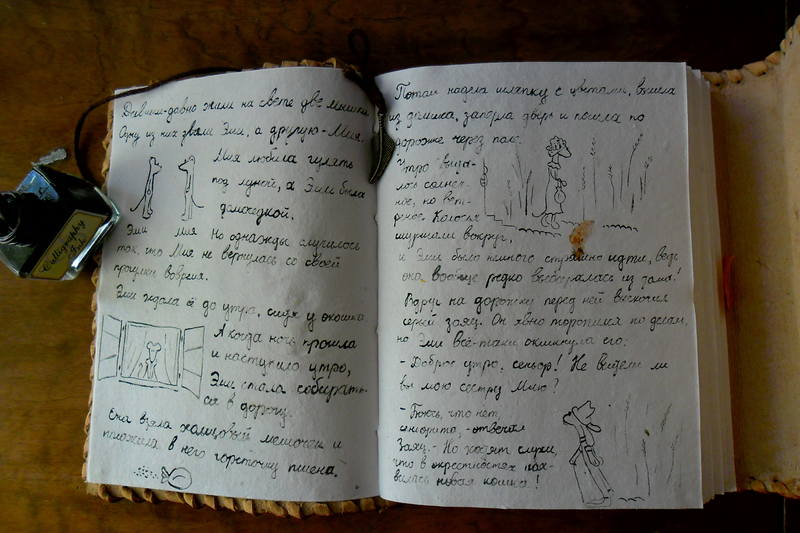 Давным-давно жили на свете две мышки.
Одну из них звали Эми, а другую - Мия.
Мия любила гулять
под луной, а Эми была
домоседкой.
Эми Мия Но однажды случилось
так, что Мия не вернулась со своей
прогулки вовремя.
Эми ждала её до утра, сидя у окошка.
А когда ночь прошла
и наступило утро,
Эми стала собирать-
ся в дорогу.
Она взяла холщовый мешочек и
положила в него горсточку пшена.
Потом надела шляпку с цветами, вышла
из домика, заперла дверь и пошла по
дорожке через поле.
Утро выда-
лось солнеч-
ное, но вет-
реное. Колосья
шуршали вокруг,
и Эми было немного страшно идти, ведь
она вообще редко выбиралась из дома!
Вдруг на дорожку перед ней выскочил
серый заяц. Он явно торопился по делам,
но Эми всё-таки окликнула его:
- Доброе утро, сеньор! Не видели ли
вы мою сестру Мию?
- Боюсь, что нет,
сеньорита, - отвечал
Заяц. - Но ходят слухи,
что в окрестностях поя-
вилась новая кошка!
Calligraphy
Ink